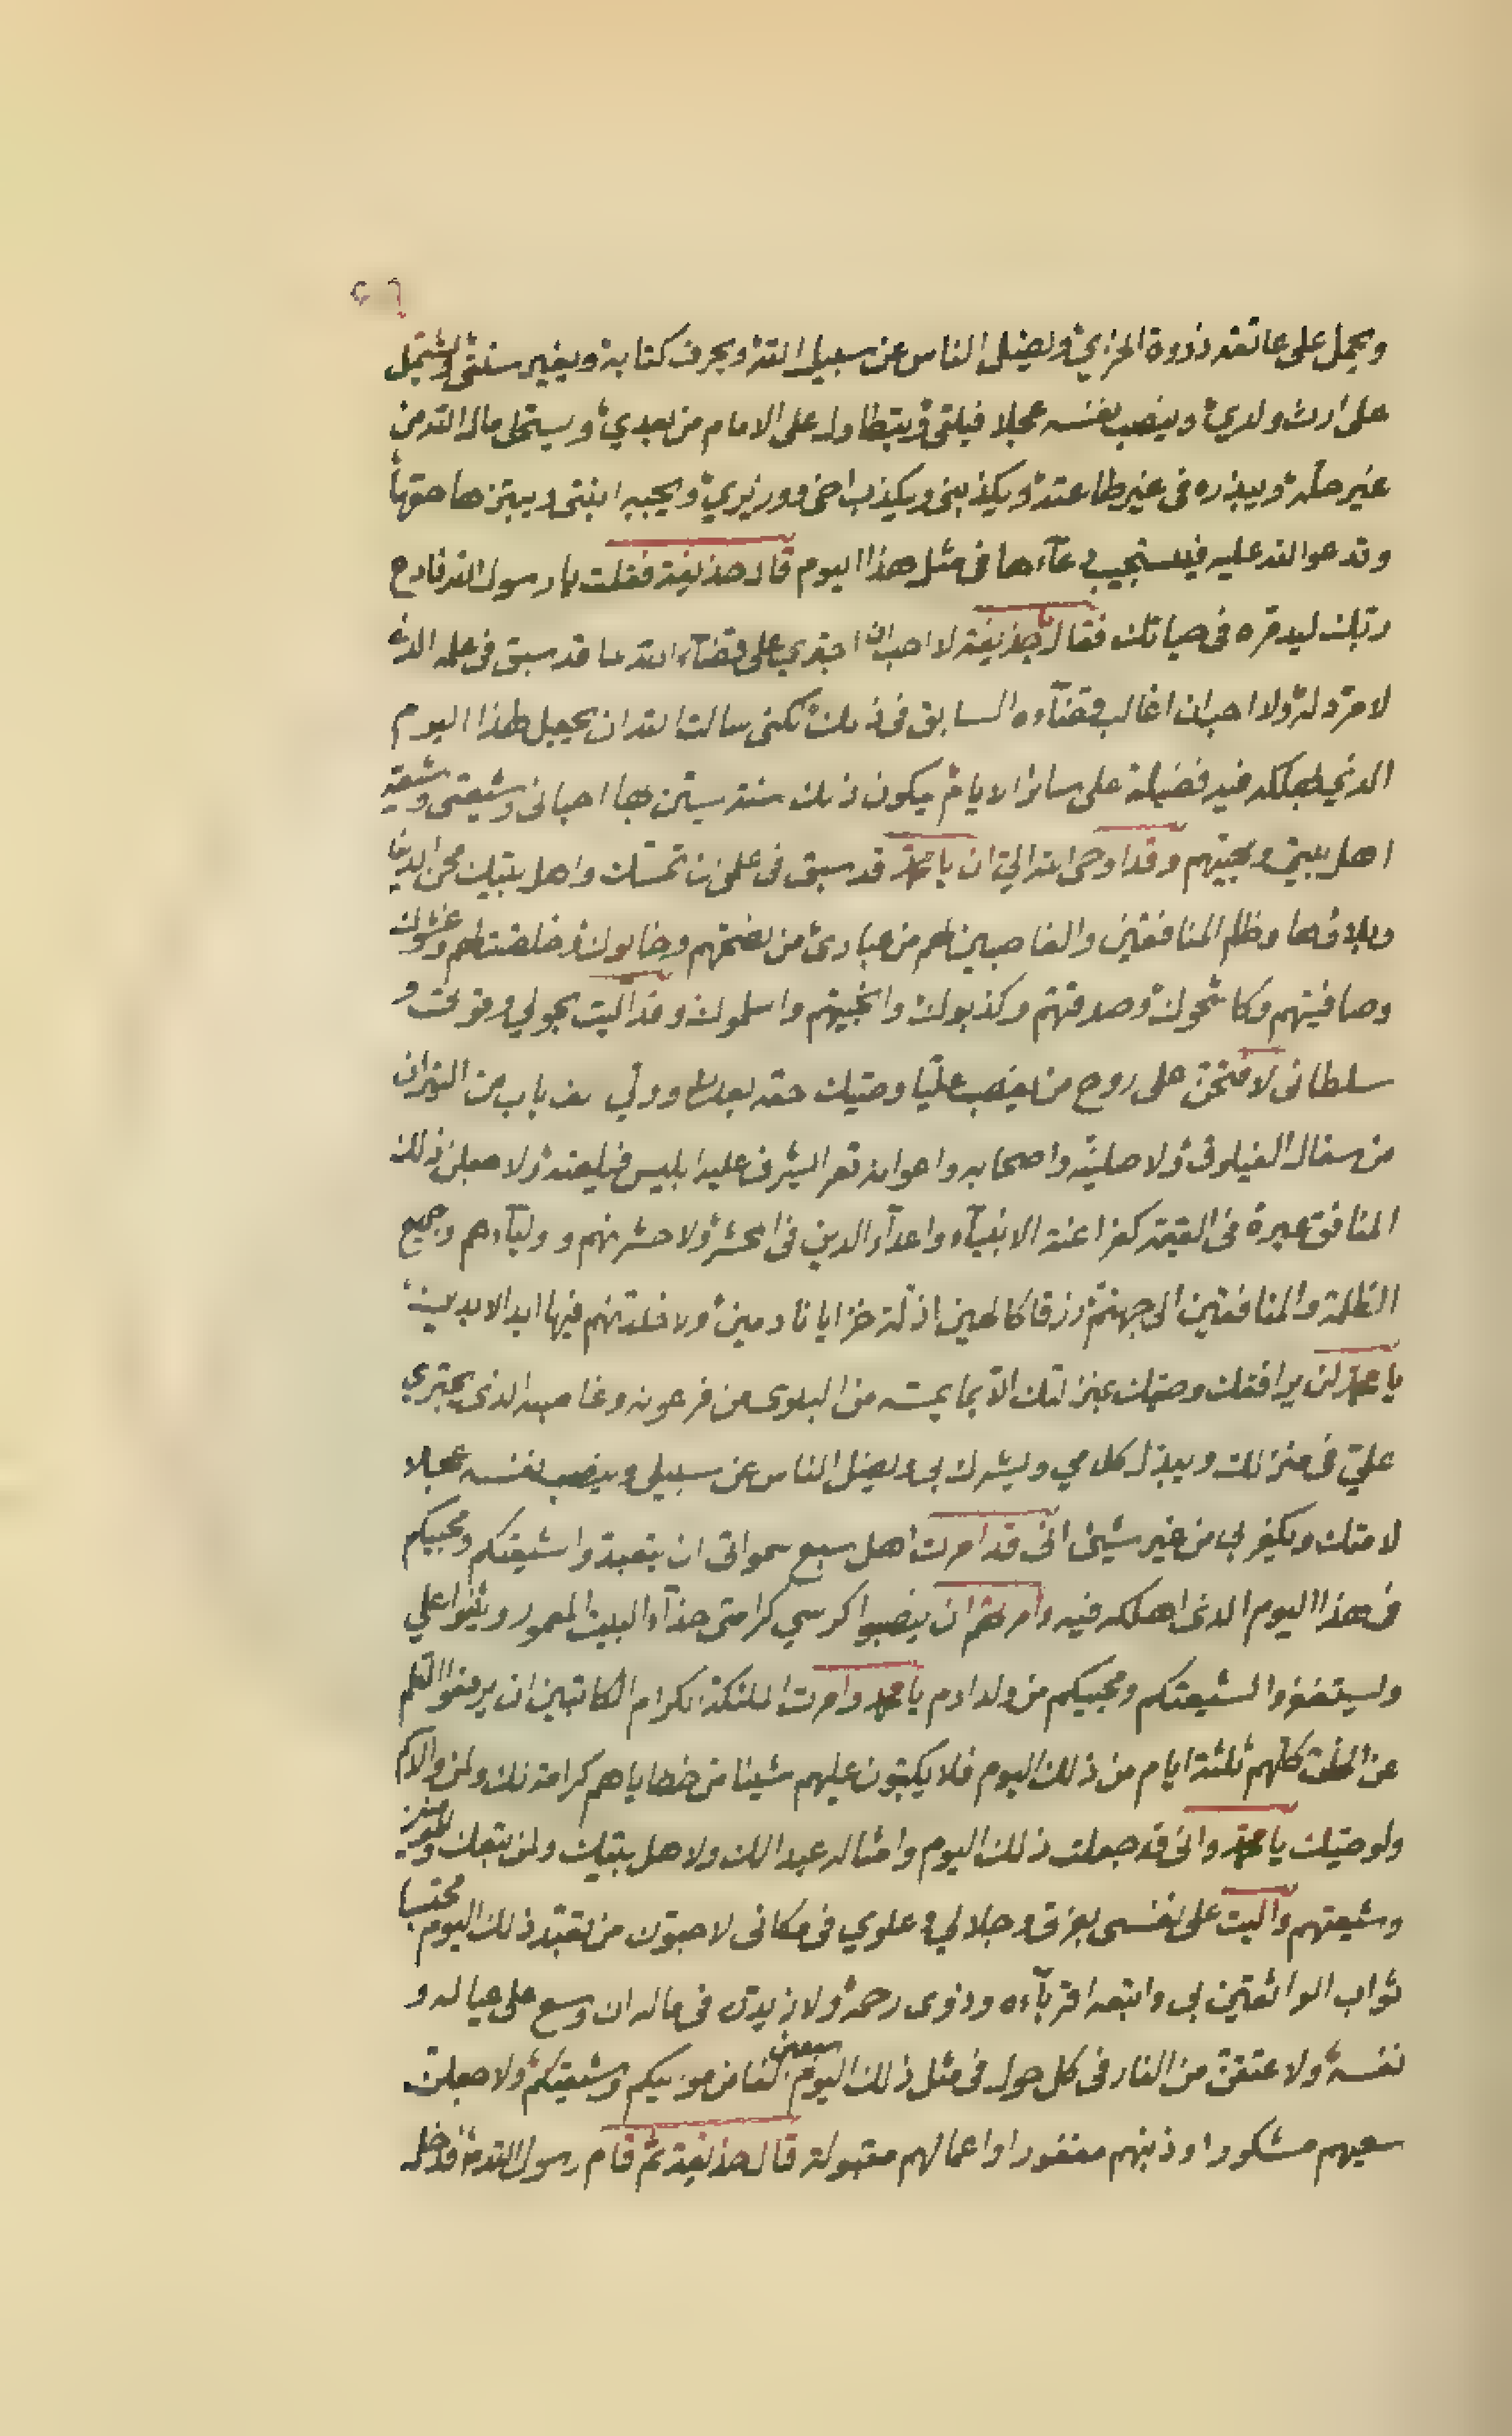 ويحمل على عاتقه ذروة الخزي ويضل الناس عن سبيل الله ويحرف كتابه ويغير سنتي ويشتمل
على ارث ولدي وينصب نفسه عجلا فيلتى ويتطاول على الامام من بعدي ويستحل مال الله من
غير حله وبيذره فى غير طاعته ويكذبنى ويكذب اخى ووزيري ويحبه ابنتى ويبتزها حقها
وتدعو الله عليه فيستجيب دعآءها فى مثل هذا اليوم قال حذيفة فقلت يا رسول الله فادع
ربك ليدمره فى حياتك فقال يا حذيفة لا احب ان اجتري على قضآء الله ما قد سبق فى علمه الذى
لا مرد له ولا احب ان اغالب قضآءه السابق فى ذلك لكنى سالت الله ان يجعل لهذا اليوم
الذي يهلكه فيه فضيلة على سائر الايام يكون ذلك سنة يستن بها احبائى وشيعتى وشيعة
اهل بيتى ومحبيهم وقد اوحى الله الي ان يا محمد قد سبق فى علمى ان تمسك واهل بيتك محن الدنيا
وبلاؤها وظلم المنافقين والغاصبين لهم من عبادى من نصحتهم وخانوك وخلصت لهم وغشوك
وصافيتهم وكاشحوك وصدقتهم وكذبوك وانجيتهم واسلموك وقد آليت بحولي وقوتى و
سلطانى لافتحن على روح من يغصب عليا وصيك حقه بعدك وولي الف باب من النيران
من سفال الفيلوق ولاصلينه واصحابه واعوانه قعر ايشرف عليه ابليس فيلعنه ولاجعلن ذلك
المنافق عبرة فى القيمة كفراعنة الانبيآء واعدآء الدين فى المحشر ولاحشرنهم واوليآءهم وجميع
الظلمة والمنافقين الى جهنم زرقا كالحين اذلة خزايا نادمين ولاخلدنهم فيها ابد الابدين
يا محمد لن يرافقك وصيك بمنزلتك الا بما يمسه من البلوى من فرعونه وغاصبه الذى يجترى
علي فى منزلك ويبدل كلامي ويشرك بي ويضل الناس عن سبيلى وينصب نفسه عجلا
لامتك ويكفر بي من غير شيئى انى قد امرت اهل سبع سمواتى ان يتعبدوا شيعتكم ومحبيكم
فى هذا اليوم الذى اهلكه فيه وامرتهم ان ينصبوا كرسي كرامتى حذآء البيت المعمور ويثنوا علي
ويستغفروا لشيعتكم ومحبيكم من ولد ادم يا محمد وامرت الملئكة الكرام الكاتبين ان يرفعوا القلم
عن الخلق كلهم ثلثة ايام من ذلك اليوم فلا يكتبون عليهم شيئا من خطاياهم كرامة لك ولمن والاكم
ولوصيك يا محمد وانى قد جعلت ذلك اليوم وامثاله عيدا لك ولاهل بيتك ولمن يتبعك
وشيعتهم وآليت على نفسى بعزتى وجلالي وعلوي فى مكانى لاحبون من تعبد ذلك اليوم محتسبا
ثواب الواثقين بي واتبعه اقربآءه وذوى رحمه ولازيدن فى ماله ان وسع على عياله و
نفسه ولاعتقن من النار فى كل حول فى مثل ذلك اليوم سبعين الفا من مواليكم وشيعتكم ولاجعلن
سعيهم مشكورا وذنبهم مغفورا واعمالهم مقبولة قال حذيفة ثم قام رسول الله فدخل